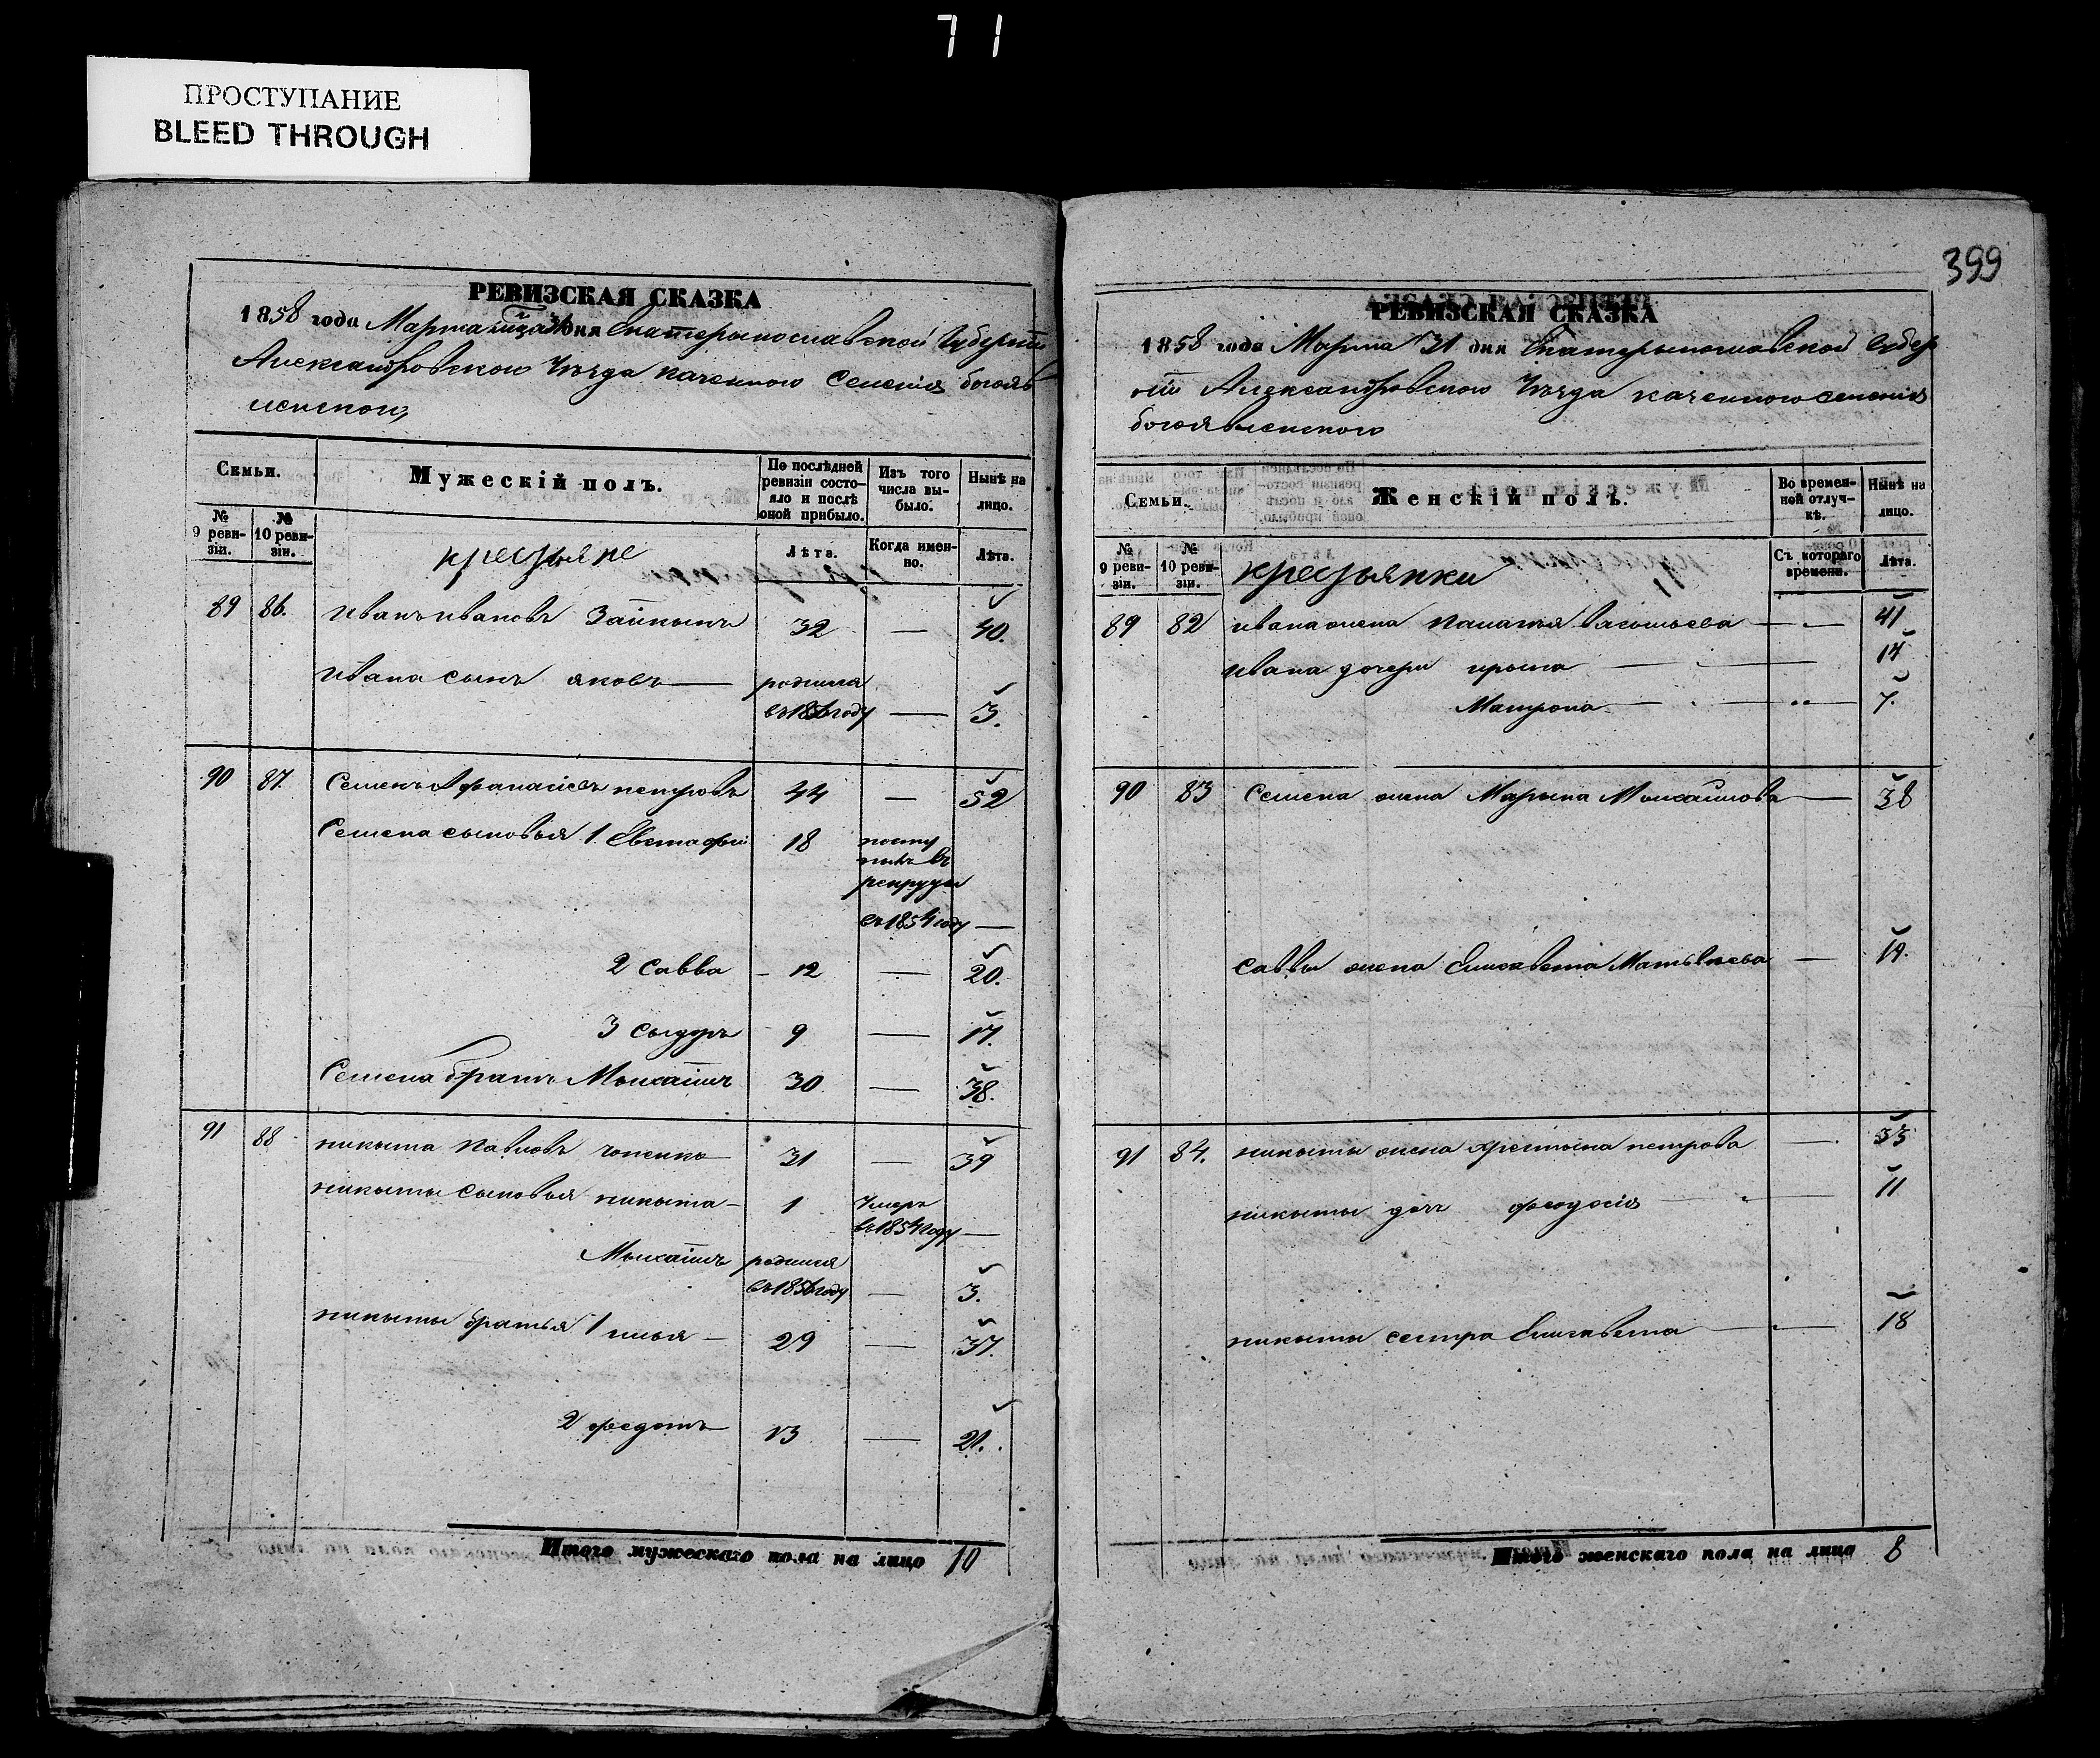 71
ПРОСТУПАНИЕ
BLEED THROUGH
399
РЕВИЗСКАЯ СКАЗКА
1858 года Марта дня Екатерынославской Губернии
Александровского Уезда казенного Селения богояв
ленского
Семьи.
Мужескій полъ.
По послѣдней ревизіи состояло и послѣ оной прибыло.
Изъ того числа выбыло.
Нынѣ на лицо.
№ 9 ревизіи.
№ 10 ревизіи.
крестьяне
Лѣта.
Когда именно.
Лѣта.
89 86. иванъ ивановъ 32 — 40.
ивана сынъ яковъ — родился
въ 1856 году — 3.
90 87. Семенъ Афанасіевъ петровъ 44 — 52
Семена сыновья 1. Евстафій 18 посту
пилъ въ
рекруты
въ 1854 году —
2 Савва — 12 — 20.
3 Сыдоръ 9 — 17.
Семена братъ Мыхаилъ 30 — 38.
91 88 никыта павловъ 31 — 39
никыты сыновья никыта — 1 Умеръ
въ 1854 году —
Мыхаилъ родился
въ 1856 году — 3.
никыты братья 1 илья — 29 — 37.
2 федотъ 13 — 21.
Итого мужескаго пола на лицо 10
РЕВИЗСКАЯ СКАЗКА
1858 года Марта 31 дня Екатерынославской Губер
нии Александровского Уезда казенного селения
богоявленского
Семьи.
Женскій полъ.
Во временной отлучкѣ.
Нынѣ на лицо.
№ 9 ревизіи.
№ 10 ревизіи.
крестьянки
Съ котораго времени.
Лѣта.
89 82 ивана жена Палажя Васильева — 41
ивана дочери ирына — 14
Матрона — 7.
90 83 Семена жена Марына Мыхайлова — 38
Саввы жена Елисавета Матвеева — 19.
91 84. никыты жена Христына петрова — 33
никыты дочь феодосія — 11
никыты сестра Елисавета — 18
Итого женскаго пола на лицо 8